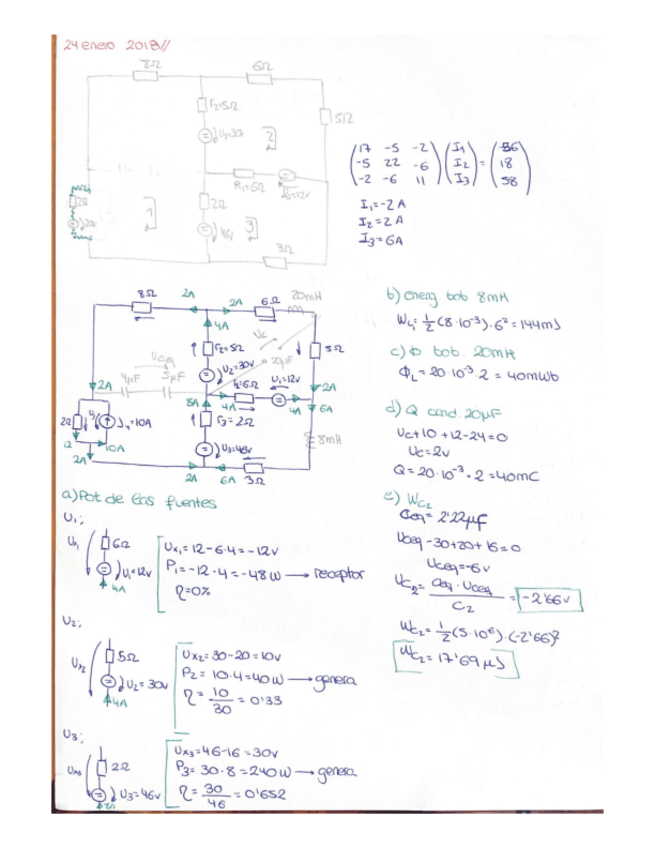 24 enero 2018//
8Ω
6Ω
r2=5Ω
5Ω
U2=30v
2
R1=6Ω
U1=12v
2Ω
20v
1
2Ω
46v
3
3Ω
(17 -5 -2) (I1) (36)
(-5 22 -6) (I2) = (18)
(-2 -6 11) (I3) (58)
I1=-2A
I2=2A
I3=6A
8Ω
2A
2A
6Ω
20mH
4A
r2=5Ω
Uc
5Ω
Uceq
U2=30v
20μF
4μF
5μF
r1=6Ω
U1=12v
2A
2A
8A
4A
4A
6A
2Ω
=10A
r3=2Ω
8mH
12
10A
U3=46v
2A
2A
6A
3Ω
b) energ bob 8mH
WL1=1/2(8·10⁻³)·6²=144mJ
c) Φ bob. 20mH
ΦL=20·10⁻³·2=40mWb
d) Q cond. 20μF
Uc+10+12-24=0
Uc=2v
Q=20·10⁻³·2=40mC
e) WC2
Ceq=2'22μF
Uceq-30+20+16=0
Uceq=-6v
UC2=Ceq·Uceq/C2=-2'66v
WC2=1/2(5·10⁶)·(-2'66)²
WC2=17'69μJ
a) Pot de las fuentes
U1;
Ux1
6Ω
U1=12v
4A
Ux1=12-6·4=-12v
P1=-12·4=-48W → receptor
η=0%
U2;
Ux2
5Ω
U2=30v
4A
Ux2=30-20=10v
P2=10·4=40W → genera
η=10/30=0'33
U3;
Ux3
2Ω
U3=46v
Ux3=46-16=30v
P3=30·8=240W → genera
η=30/46=0'652